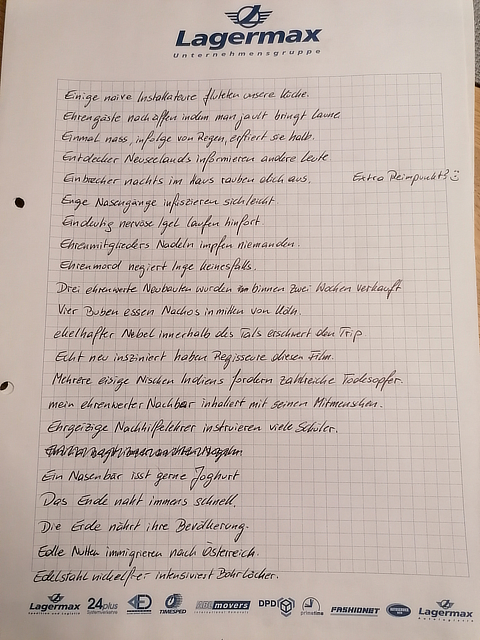 Lagermax
Unternehmensgruppe
Einige naive Installateure fluteten unsere Küche.
Ehrengäste nachäffen indem man jault bringt Laune
Einmal nass, infolge von Regen, erfriert sie halb.
Entdecker Neuseelands informieren andere Leute
Einbrecher nachts im Haus rauben dich aus. Extra Reimpunkt?
Enge Nasengänge infiszieren sich leicht.
Eindeutig nervöse Igel laufen hinfort.
Ehrenmitglieders Nadeln impfen niemanden.
Ehrenmord negiert Inge keinesfalls.
Drei ehrenwerte Neubauten wurden binnen zwei Wochen verkauft
Vier Buben essen Nachos inmitten von Köln.
ekelhafter Nebel innerhalb des Tals erschwert den Trip
Echt neu insziniert haben Regisseure diesen Film.
Mehrere eisige Nischen Indiens fordern zahlreiche Todesopfer.
mein ehrenwerter Nachbar inhaliert mit seinen Mitmenschen.
Ehrgeizige Nachhilfelehrer instruieren viele Schüler.
Ein Nasenbär isst gerne Joghurt
Das Ende naht immens schnell.
Die Erde nährt ihre Bevölkerung.
Edle Nutten immigrieren nach Österreich.
Edelstahl nickelfrei intensiviert Bohrlöcher.
Lagermax 24plus TIMESPED movers DPD primetime FASHIONNET Lagermax